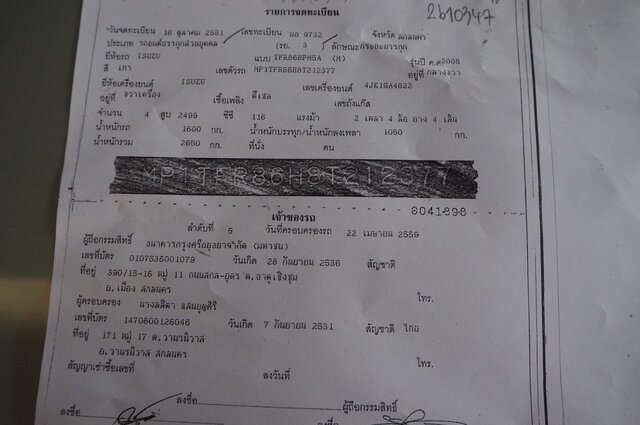 2610347
รายการจดทะเบียน
วันจดทะเบียน 16 ตุลาคม 2551 เลขทะเบียน บฉ 9732 จังหวัด สกลนคร
ประเภท รถยนต์บรรทุกส่วนบุคคล (รย. 3) ลักษณะกระบะบรรทุก
ยี่ห้อรถ ISUZU แบบ TFR86HPM5A (M) รุ่นปี ค.ศ2008
สี เทา เลขตัวรถ MP1TFR86H8T212377 อยู่ที่ กลางขวา
ยี่ห้อเครื่องยนต์ ISUZU เลขเครื่องยนต์ 4JK1GA4822
อยู่ที่ ขวาเครื่อง เชื้อเพลิง ดีเซล เลขถังแก๊ส
จำนวน 4 สูบ 2499 ซีซี 116 แรงม้า 2 เพลา 4 ล้อ ยาง 4 เส้น
น้ำหนักรถ 1600 กก. น้ำหนักบรรทุก/น้ำหนักลงเพลา 1050 กก.
น้ำหนักรวม 2650 กก. ที่นั่ง คน
MP1TFR86H8T212377
0041898
เจ้าของรถ
ลำดับที่ 5 วันที่ครอบครองรถ 22 เมษายน 2559
ผู้ถือกรรมสิทธิ์ ธนาคารกรุงศรีอยุธยาจำกัด (มหาชน)
เลขที่บัตร 0107536001079 วันเกิด 28 กันยายน 2536 สัญชาติ
ที่อยู่ 390/15-16 หมู่ 11 ถนนสกล-อุดร ต.ธาตุเชิงชุม
อ.เมือง สกลนคร โทร.
ผู้ครอบครอง นางลลิตา แสนบุญศิริ
เลขที่บัตร 1470800126046 วันเกิด 7 กันยายน 2531 สัญชาติ ไทย
ที่อยู่ 171 หมู่ 17 ต.วานรนิวาส
อ.วานรนิวาส สกลนคร โทร.
สัญญาเช่าซื้อเลขที่ ลงวันที่
ลงชื่อ ผู้ถือกรรมสิทธิ์
ลงชื่อ ลงชื่อ